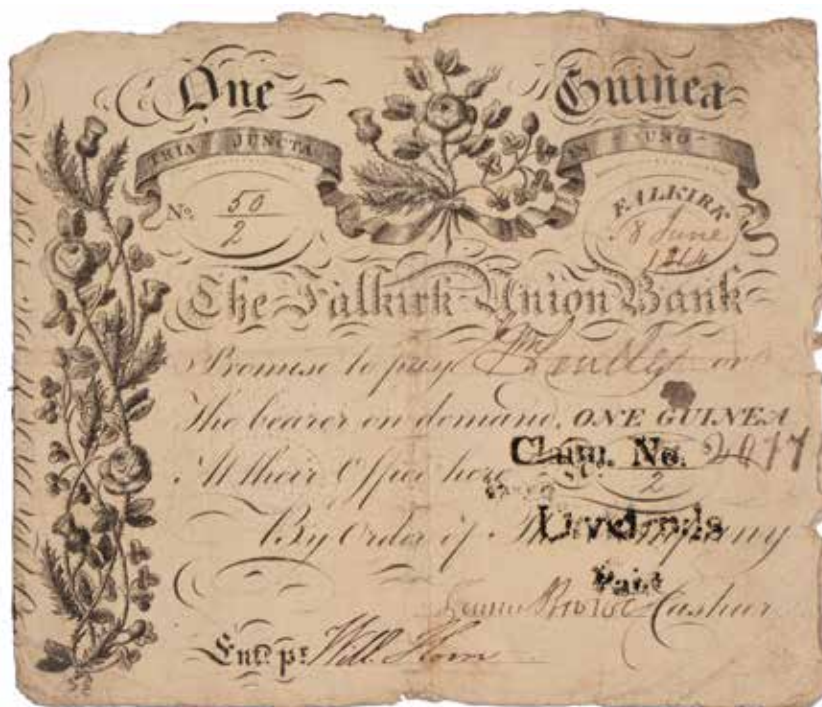 One Guinea
TRIA JUNCTA IN UNO
No. 50/2
FALKIRK
8 June
The Falkirk Union Bank
Promise to pay or
the bearer on demand, ONE GUINEA
At their Office here
Claim. No. 2017
2
By Order of The Company
Dividends
Paid
Cashier
Entd. pr. Will. Horn